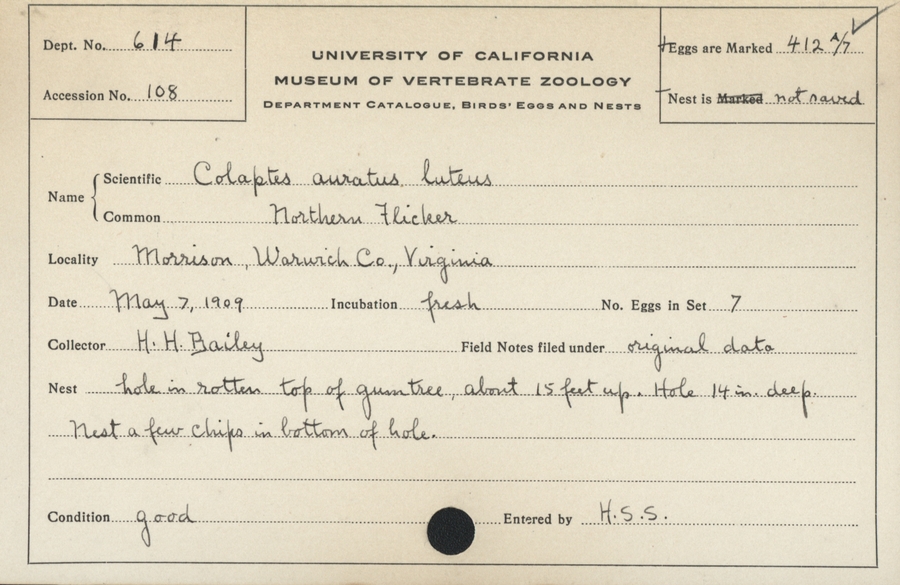 Dept. No. 614
Accession No. 108
UNIVERSITY OF CALIFORNIA
MUSEUM OF VERTEBRATE ZOOLOGY
DEPARTMENT CATALOGUE, BIRDS' EGGS AND NESTS
Eggs are Marked 412 A/7
Nest is Marked not saved
Name
Scientific Colaptes auratus luteus
Common Northern Flicker
Locality Morrison, Warwich Co., Virginia
Date May 7, 1909 Incubation fresh No. Eggs in Set 7
Collector H. H. Bailey Field Notes filed under original data
Nest hole in rotten top of gumtree, about 15 feet up. Hole 14 in. deep.
Nest a few chips in bottom of hole.
Condition good Entered by H.S.S.